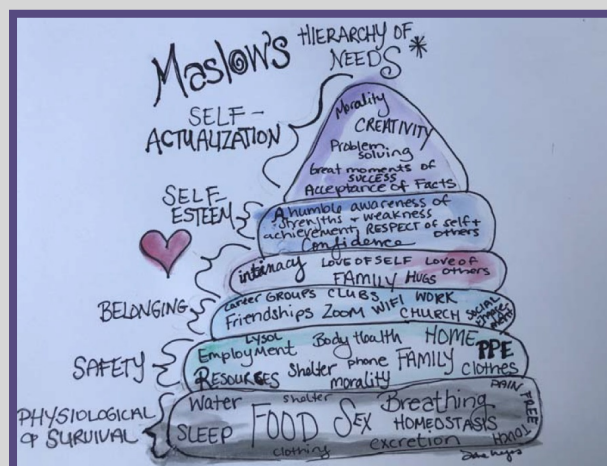 Maslow's HIERARCHY OF NEEDS *
SELF-
ACTUALIZATION
Morality
CREATIVITY
Problem
solving
Great moments of
SUCCESS
Acceptance of Facts
SELF
ESTEEM
A humble awareness of
strengths + weakness
achievement, RESPECT of self +
others
Confidence
intimacy LOVE OF SELF LOVE OF
others
FAMILY HUGS
BELONGING
GROUPS CLUBS WIFI WORK
Friendships ZOOM CHURCH SOCIAL
SAFETY
LYSOL Body Health HOME
Employment PPE
RESOURCES Shelter phone FAMILY clothes
morality
PHYSIOLOGICAL
SURVIVAL
Water shelter Breathing PAIN FREE
SLEEP FOOD SEX HOMEOSTASIS TOUCH
clothing excretion